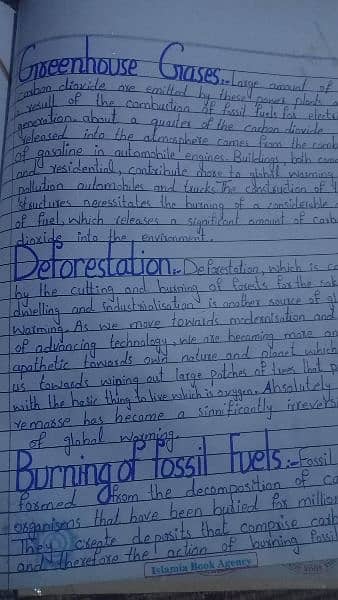 Greenhouse Gases:- Large amount of
carbon dioxide are emitted by these power plants a
a result of the combustion of fossil fuels for elect
generation. about a quarter of the carbon dioxide
released into the atmosphere comes from the comb
of gasoline in automobile engines. Buildings, both com
and residential, contribute more to global warming
pollution automobiles and trucks. The construction of t
structures necessitates the burning of a considerable
of fuel, which releases a significant amount of carb
dioxide into the environment.
Deforestation:- Deforestation, which is ca
by the cutting and burning of forests for the sak
dwelling and industrialisation is another source of gl
warming. As we move towards modernisation and
of advancing technology, we are becoming more an
apathetic towards our nature and planet which
us towards wiping out large patches of trees that p
with the basic thing to live which is oxygen. Absolutely
remorse has become a significantly irrevers
of global warming.
Burning of Fossil Fuels:- Fossil
formed from the decomposition of ca
organisms that have been buried for million
They create deposits that comprise carb
and therefore the action of burning fossil
Islamia Book Agency